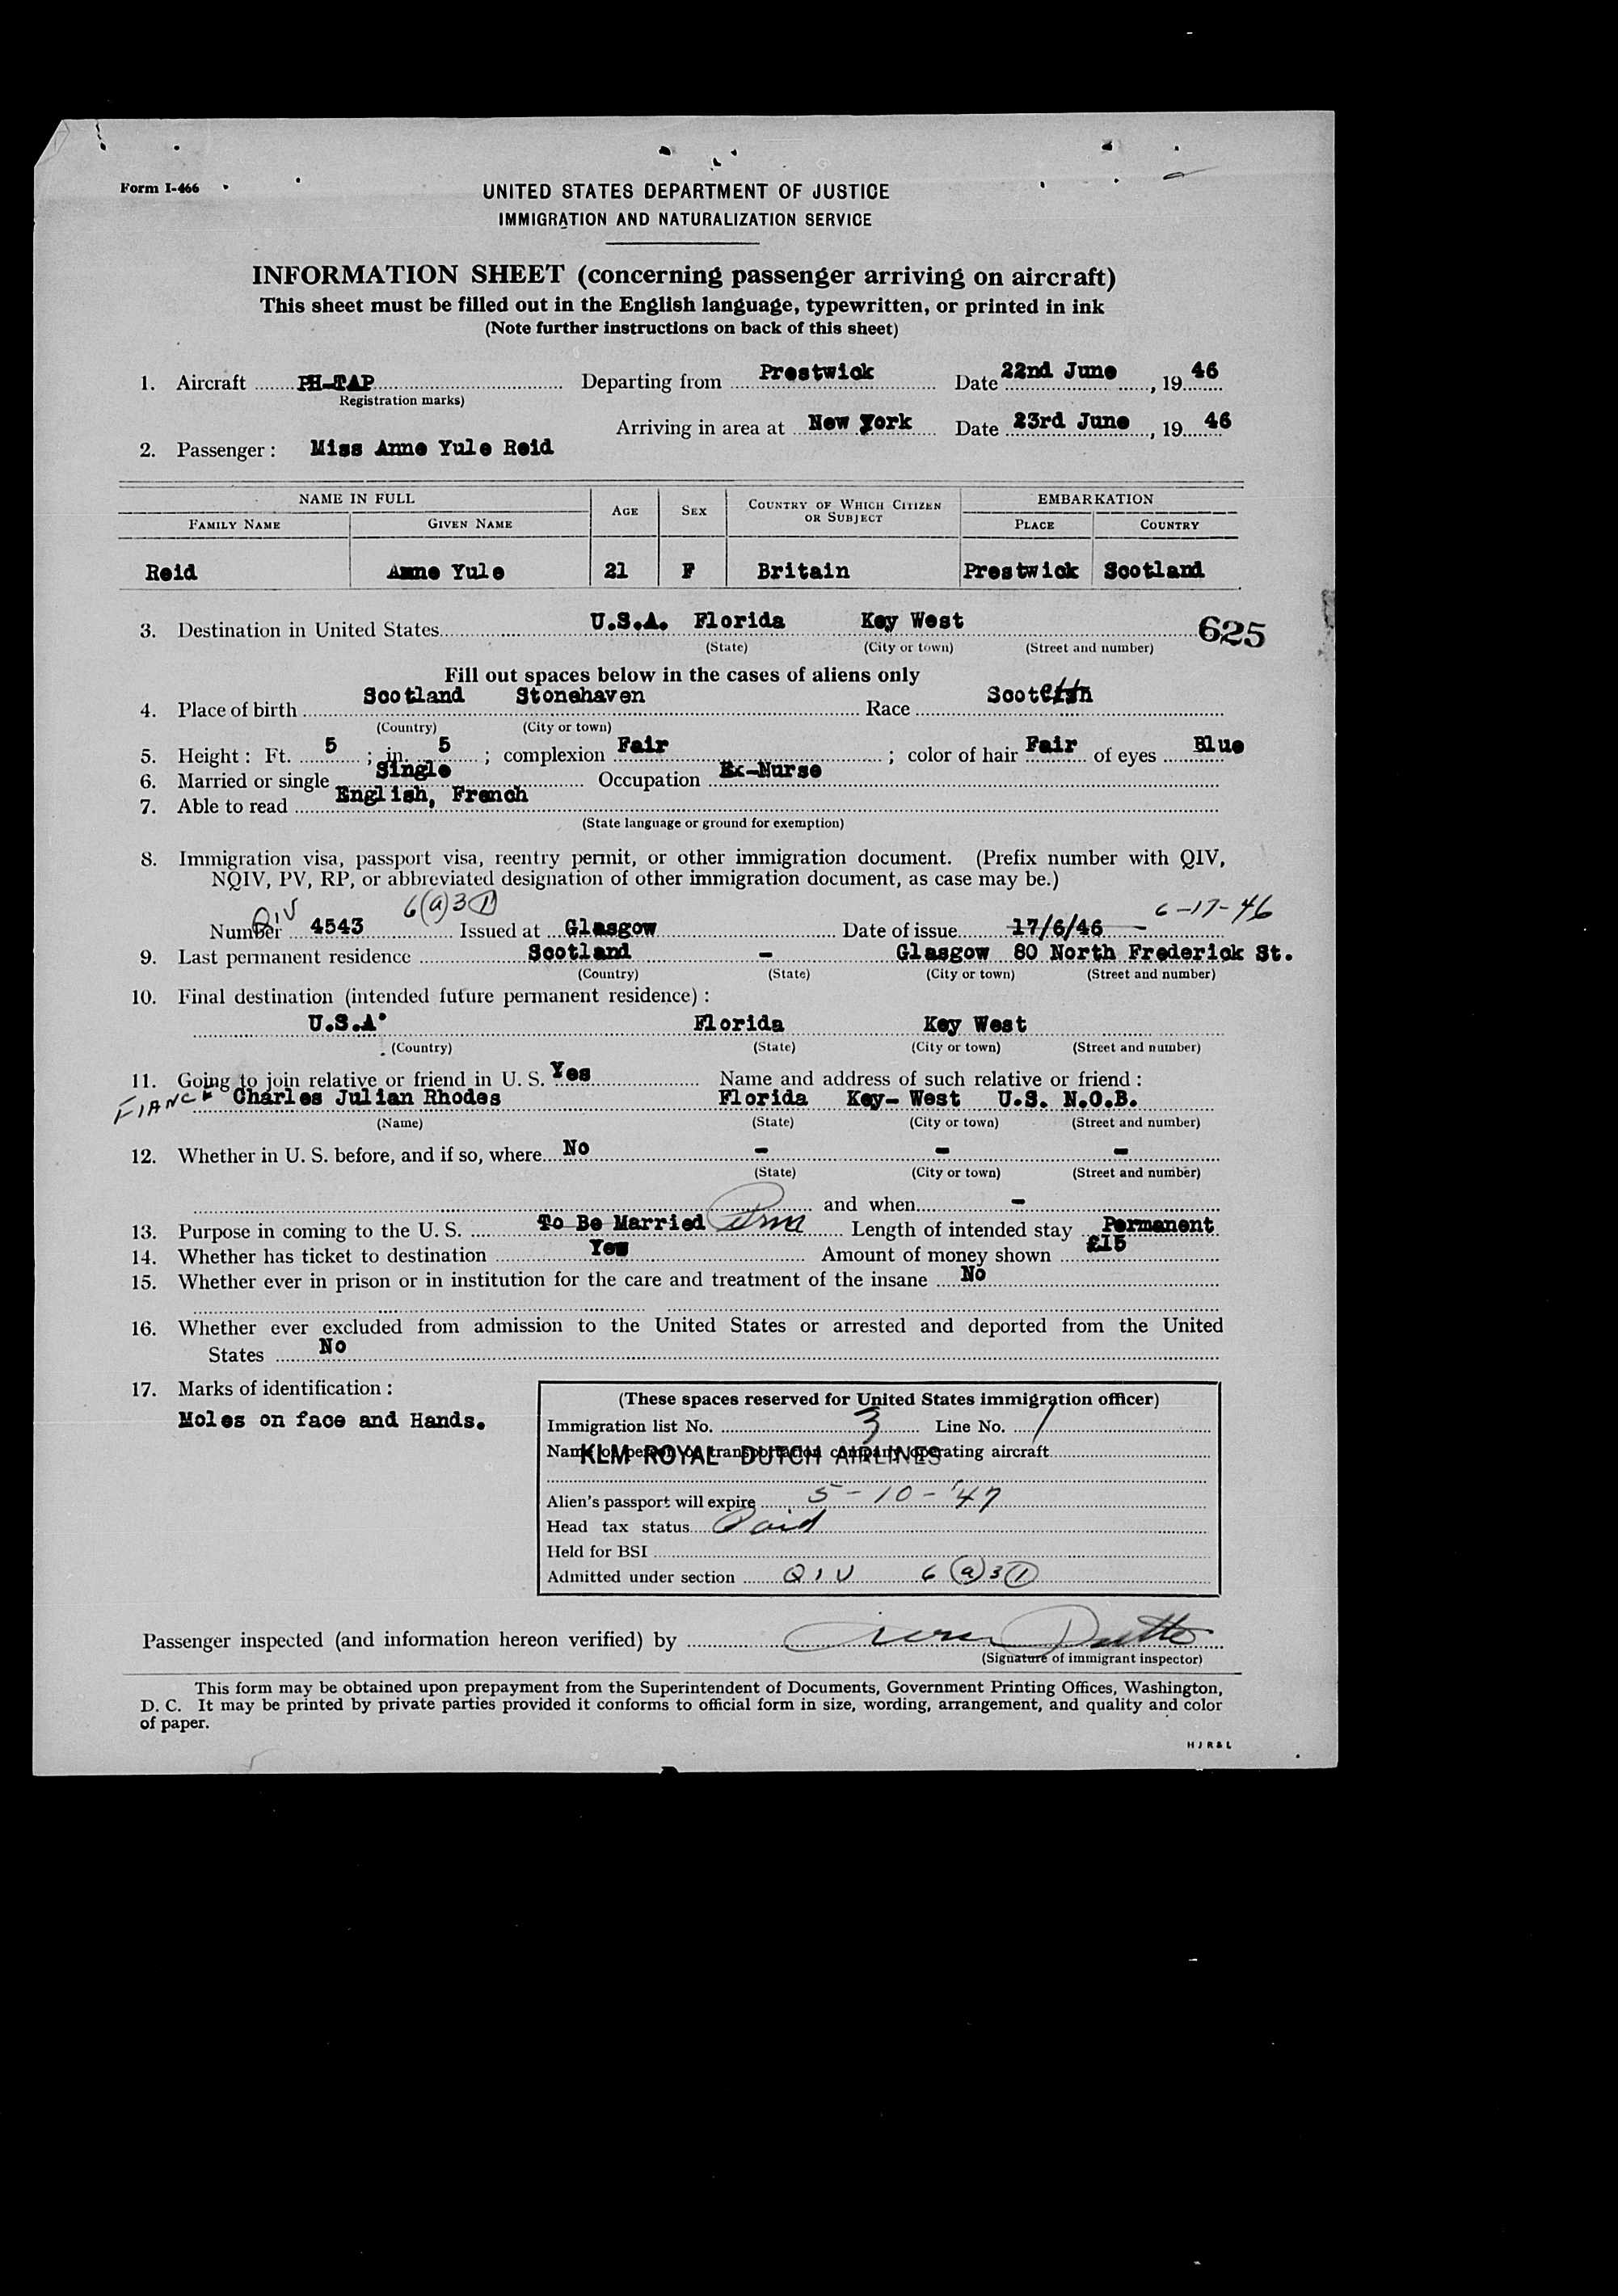 Form I-466
UNITED STATES DEPARTMENT OF JUSTICE
IMMIGRATION AND NATURALIZATION SERVICE
INFORMATION SHEET (concerning passenger arriving on aircraft)
This sheet must be filled out in the English language, typewritten, or printed in ink
(Note further instructions on back of this sheet)
1. Aircraft PH-TAP Departing from Prestwick Date 22nd June, 19 46
Registration marks)
Arriving in area at New York Date 23rd June, 19 46
2. Passenger: Miss Anne Yule Reid
NAME IN FULL AGE SEX COUNTRY OF WHICH CITIZEN OR SUBJECT EMBARKATION
FAMILY NAME GIVEN NAME PLACE COUNTRY
Reid Anne Yule 21 F Britain Prestwick Scotland
3. Destination in United States U.S.A. Florida Key West 625
(State) (City or town) (Street and number)
Fill out spaces below in the cases of aliens only
4. Place of birth Scotland Stonehaven Race Scot
(Country) (City or town)
5. Height: Ft. 5; in. 5; complexion Fair; color of hair Fair of eyes Blue
6. Married or single Single Occupation Ex-Nurse
7. Able to read English, French
(State language or ground for exemption)
8. Immigration visa, passport visa, reentry permit, or other immigration document. (Prefix number with QIV,
NQIV, PV, RP, or abbreviated designation of other immigration document, as case may be.)
QIV 6(a)3(1) 6-17-46
Number 4543 Issued at Glasgow Date of issue 17/6/46
9. Last permanent residence Scotland - Glasgow 80 North Frederick St.
(Country) (State) (City or town) (Street and number)
10. Final destination (intended future permanent residence):
U.S.A. Florida Key West
(Country) (State) (City or town) (Street and number)
11. Going to join relative or friend in U. S. Yes Name and address of such relative or friend:
FIANCE Charles Julian Rhodes Florida Key-West U.S. N.O.B.
(Name) (State) (City or town) (Street and number)
12. Whether in U. S. before, and if so, where No - - -
(State) (City or town) (Street and number)
and when -
13. Purpose in coming to the U. S. To Be Married Perm Length of intended stay Permanent
14. Whether has ticket to destination Yes Amount of money shown £15
15. Whether ever in prison or in institution for the care and treatment of the insane No
16. Whether ever excluded from admission to the United States or arrested and deported from the United
States No
17. Marks of identification:
Moles on face and Hands.
(These spaces reserved for United States immigration officer)
Immigration list No. 3 Line No. 1
Name of person or transportation company operating aircraft
KLM ROYAL DUTCH AIRLINES
Alien's passport will expire 5-10-'47
Head tax status Paid
Held for BSI
Admitted under section QIV 6(a)3(1)
Passenger inspected (and information hereon verified) by
(Signature of immigrant inspector)
This form may be obtained upon prepayment from the Superintendent of Documents, Government Printing Offices, Washington,
D. C. It may be printed by private parties provided it conforms to official form in size, wording, arrangement, and quality and color
of paper.
H J R & L